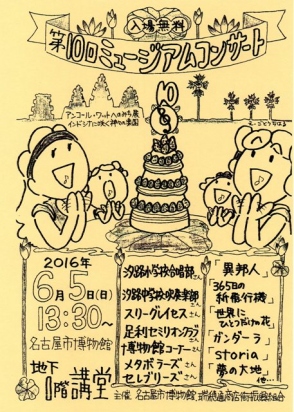 入場無料
第10回ミュージアムコンサート
アンコール・ワットへのみち展
インドシナに咲く神々の楽園
10
2016年
6月5日(日)
13:30〜
名古屋市博物館
地下1階講堂
汐路小学校合唱部さん
汐路中学校吹奏楽部さん
スリーグレイセスさん
足利セミリオンクラブさん
博物館コーナーさん
メタボラーズさん
セレブリーズさん
「異邦人」
「365日の
紙飛行機」
「世界に
ひとつだけの花」
「ガンダーラ」
「storia」
「夢の大地」
他…
主催 名古屋市博物館